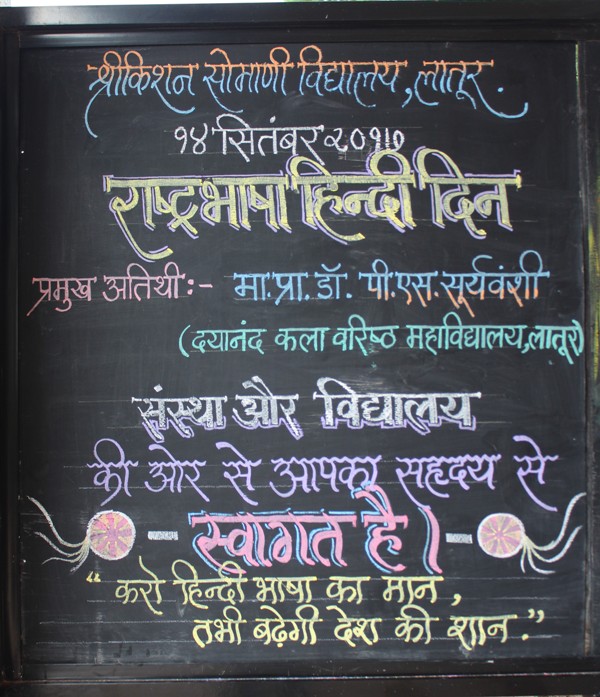 श्रीकिशन सोमाणी विद्यालय,लातूर.
१४ सितंबर २०१७
राष्ट्रभाषा हिन्दी दिन
प्रमुख अतिथी:- मा.प्रा.डॉ. पी.एस.सूर्यवंशी
(दयानंद कला वरिष्ठ महाविद्यालय,लातूर)
संस्था और विद्यालय
की ओर से आपका सहृदय से
-स्वागत है।-
“करो हिन्दी भाषा का मान,
तभी बढ़ेगी देश की शान.”